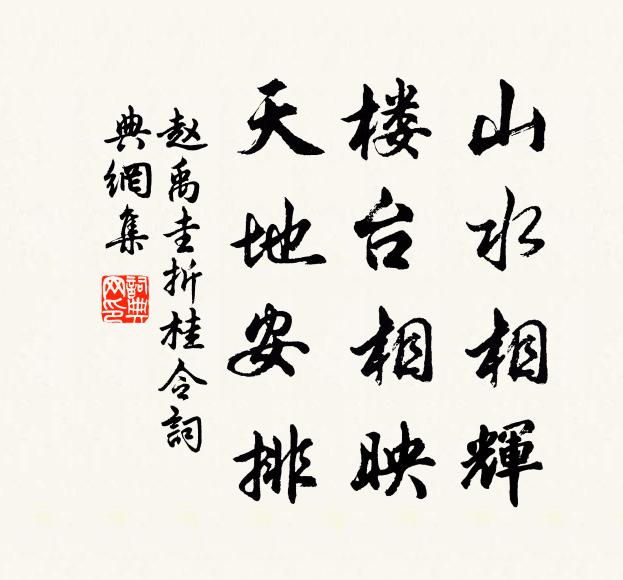 山水相輝
楼台相映
天地安排
赵禹圭折桂令詞
典網集
詞典
网印